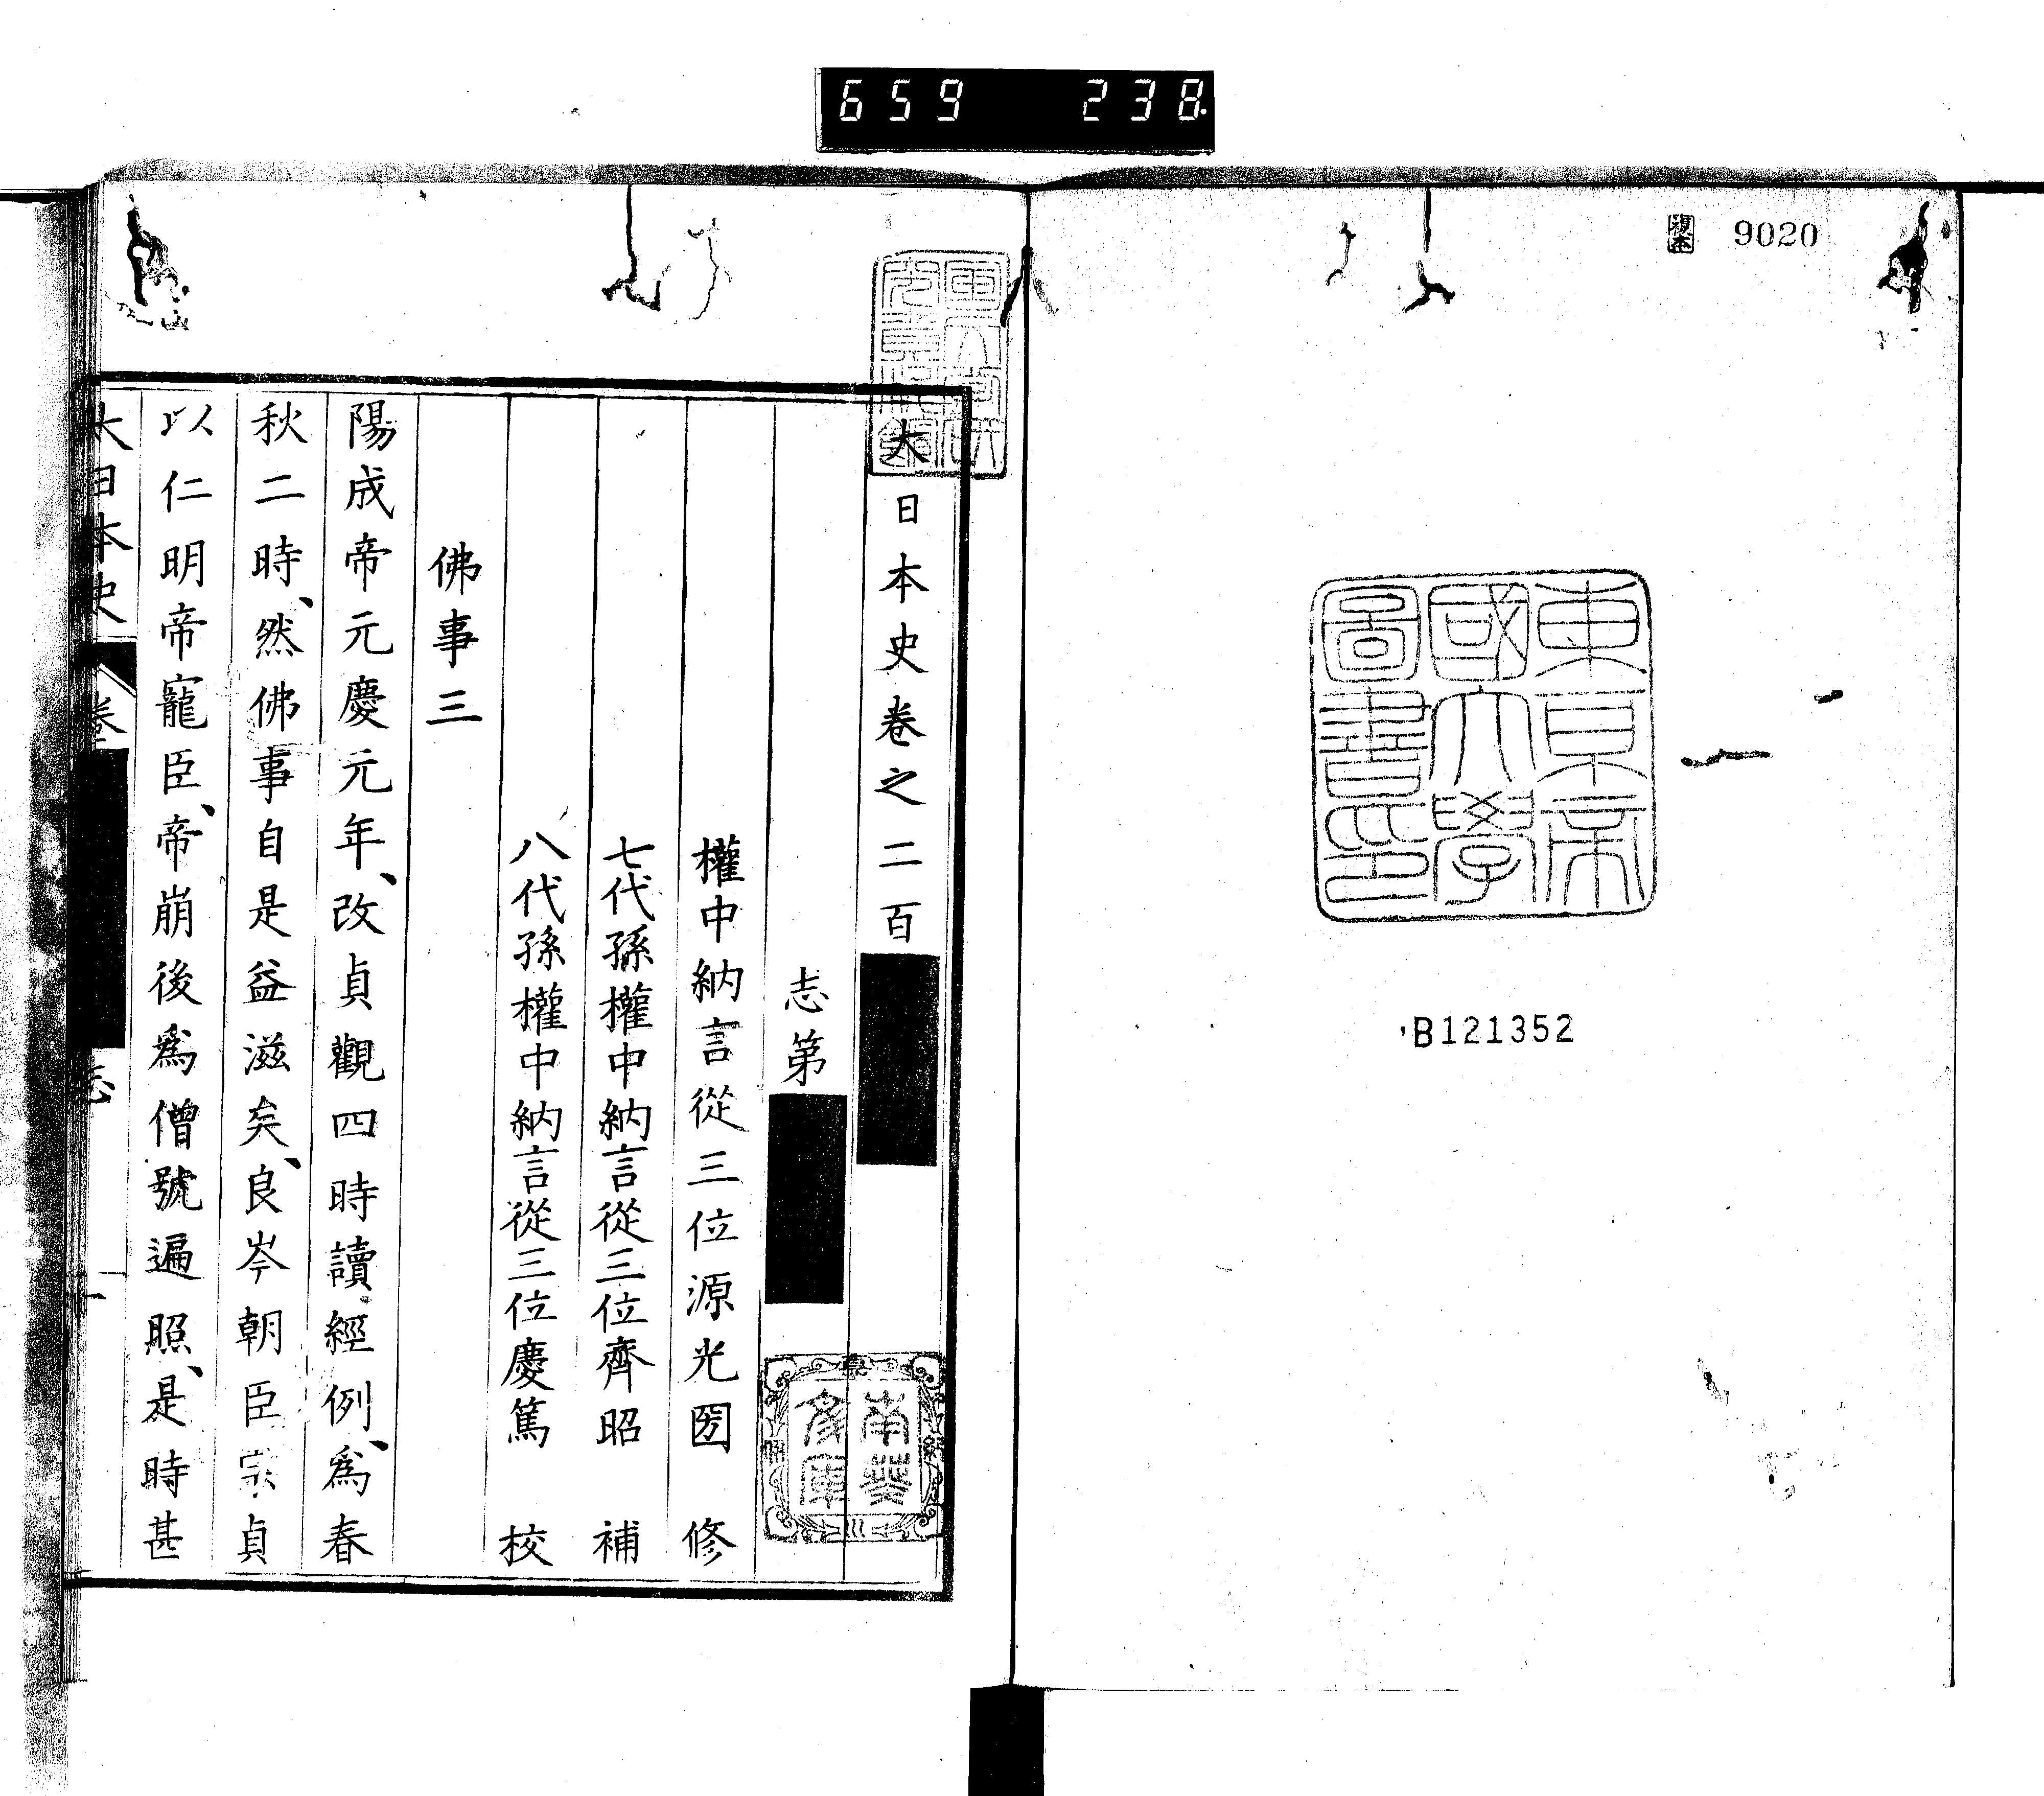 659 238
複本 9020
東京帝
國大學
圖書印
B121352
大日本史卷之二百
志第
權中納言從三位源光圀 修
七代孫權中納言從三位齊昭 補
八代孫權中納言從三位慶篤 校
佛事三
陽成帝元慶元年、改貞觀四時讀經例、爲春
秋二時、然佛事自是益滋矣、良岑朝臣宗貞
以仁明帝寵臣、帝崩後爲僧號遍照、是時甚
大日本史 卷 志 一
南葵
文庫